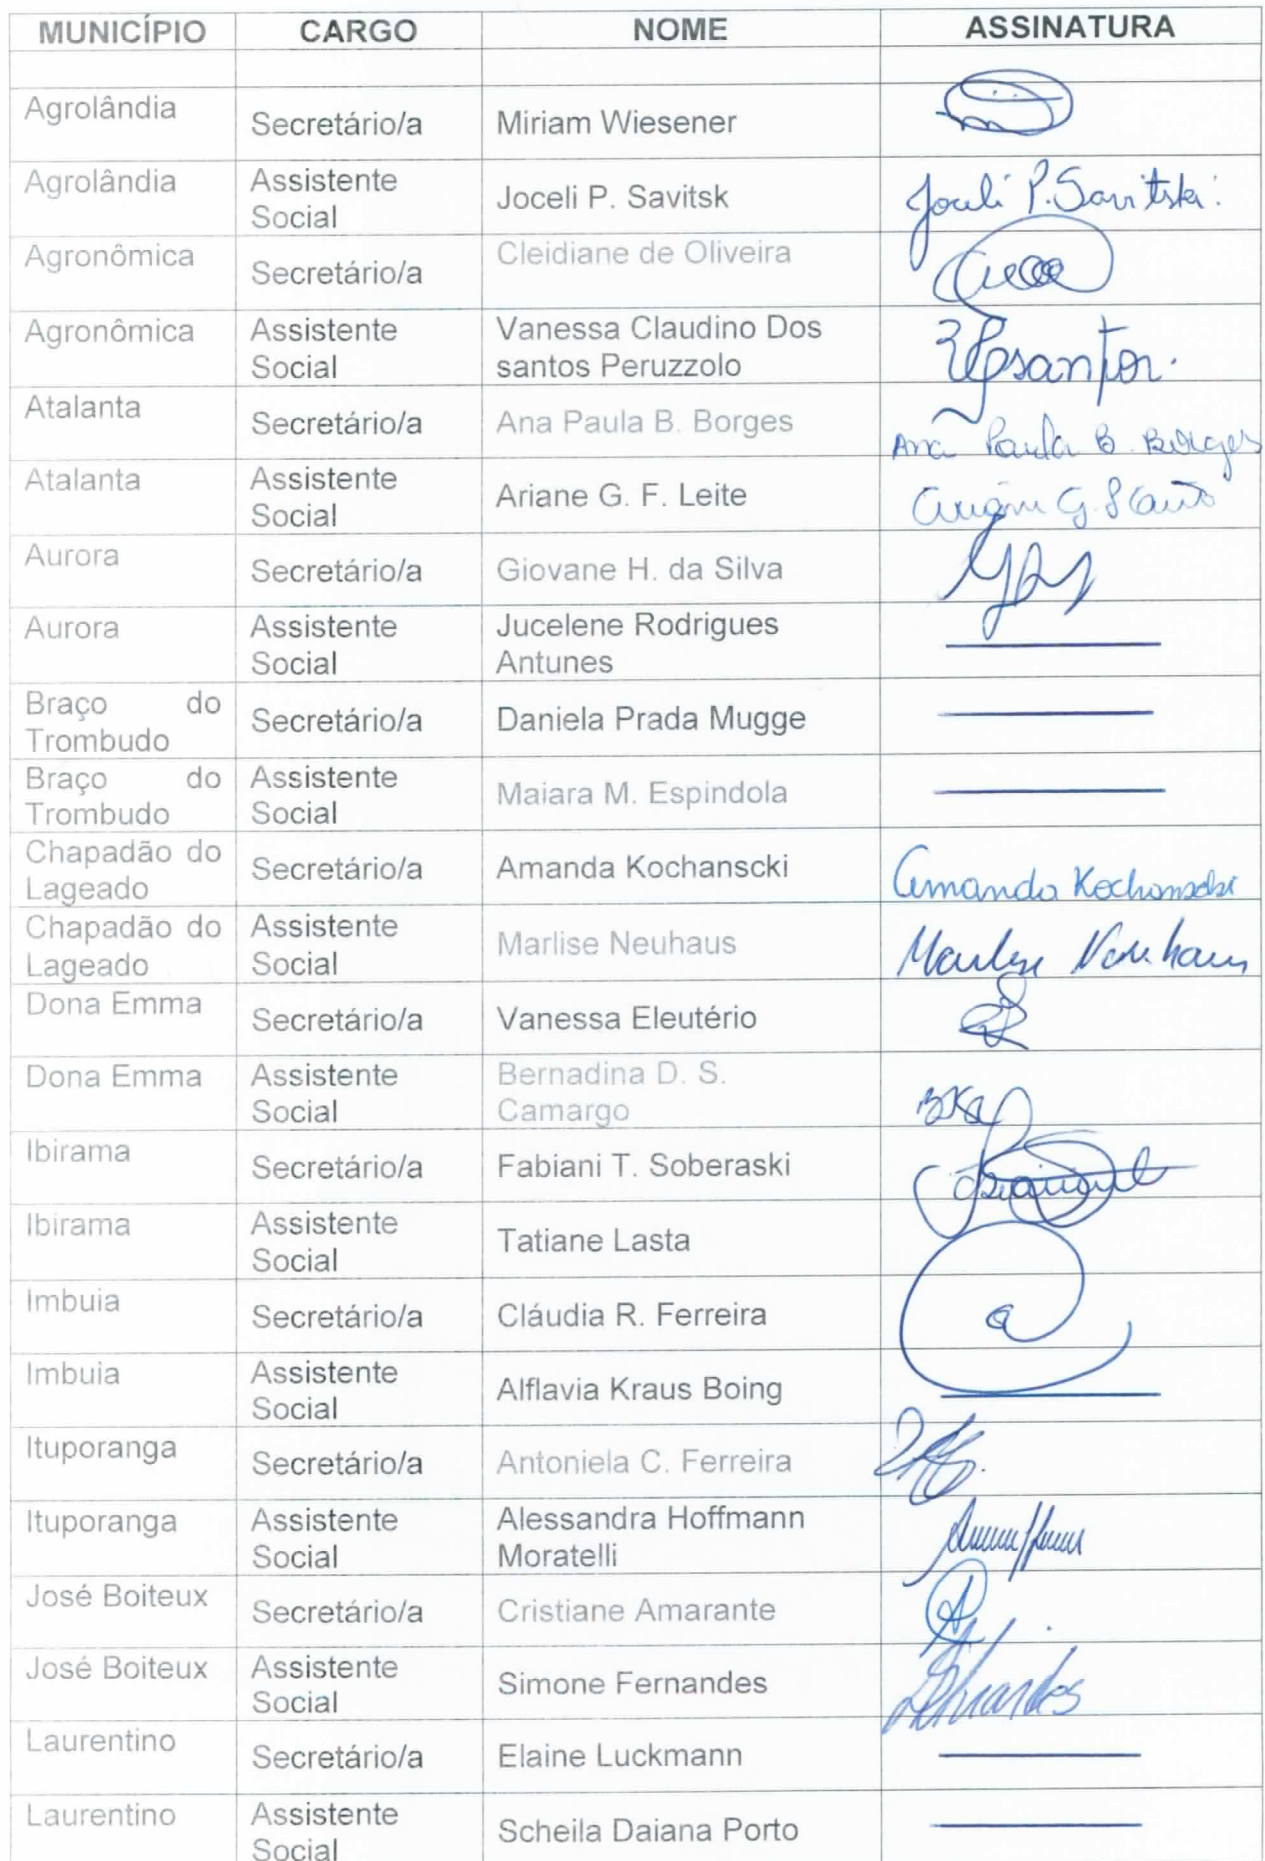 MUNICÍPIO CARGO NOME ASSINATURA
Agrolândia Secretário/a Miriam Wiesener
Agrolândia Assistente Social Joceli P. Savitsk Joceli P. Savitski
Agronômica Secretário/a Cleidiane de Oliveira
Agronômica Assistente Social Vanessa Claudino Dos santos Peruzzolo
Atalanta Secretário/a Ana Paula B. Borges Ana Paula B. Borges
Atalanta Assistente Social Ariane G. F. Leite
Aurora Secretário/a Giovane H. da Silva
Aurora Assistente Social Jucelene Rodrigues Antunes
Braço do Trombudo Secretário/a Daniela Prada Mugge
Braço do Trombudo Assistente Social Maiara M. Espindola
Chapadão do Lageado Secretário/a Amanda Kochanscki Amanda Kochanscki
Chapadão do Lageado Assistente Social Marlise Neuhaus Marlise Neuhaus
Dona Emma Secretário/a Vanessa Eleutério
Dona Emma Assistente Social Bernadina D. S. Camargo
Ibirama Secretário/a Fabiani T. Soberaski
Ibirama Assistente Social Tatiane Lasta
Imbuia Secretário/a Cláudia R. Ferreira
Imbuia Assistente Social Alflavia Kraus Boing
Ituporanga Secretário/a Antoniela C. Ferreira
Ituporanga Assistente Social Alessandra Hoffmann Moratelli
José Boiteux Secretário/a Cristiane Amarante
José Boiteux Assistente Social Simone Fernandes
Laurentino Secretário/a Elaine Luckmann
Laurentino Assistente Social Scheila Daiana Porto